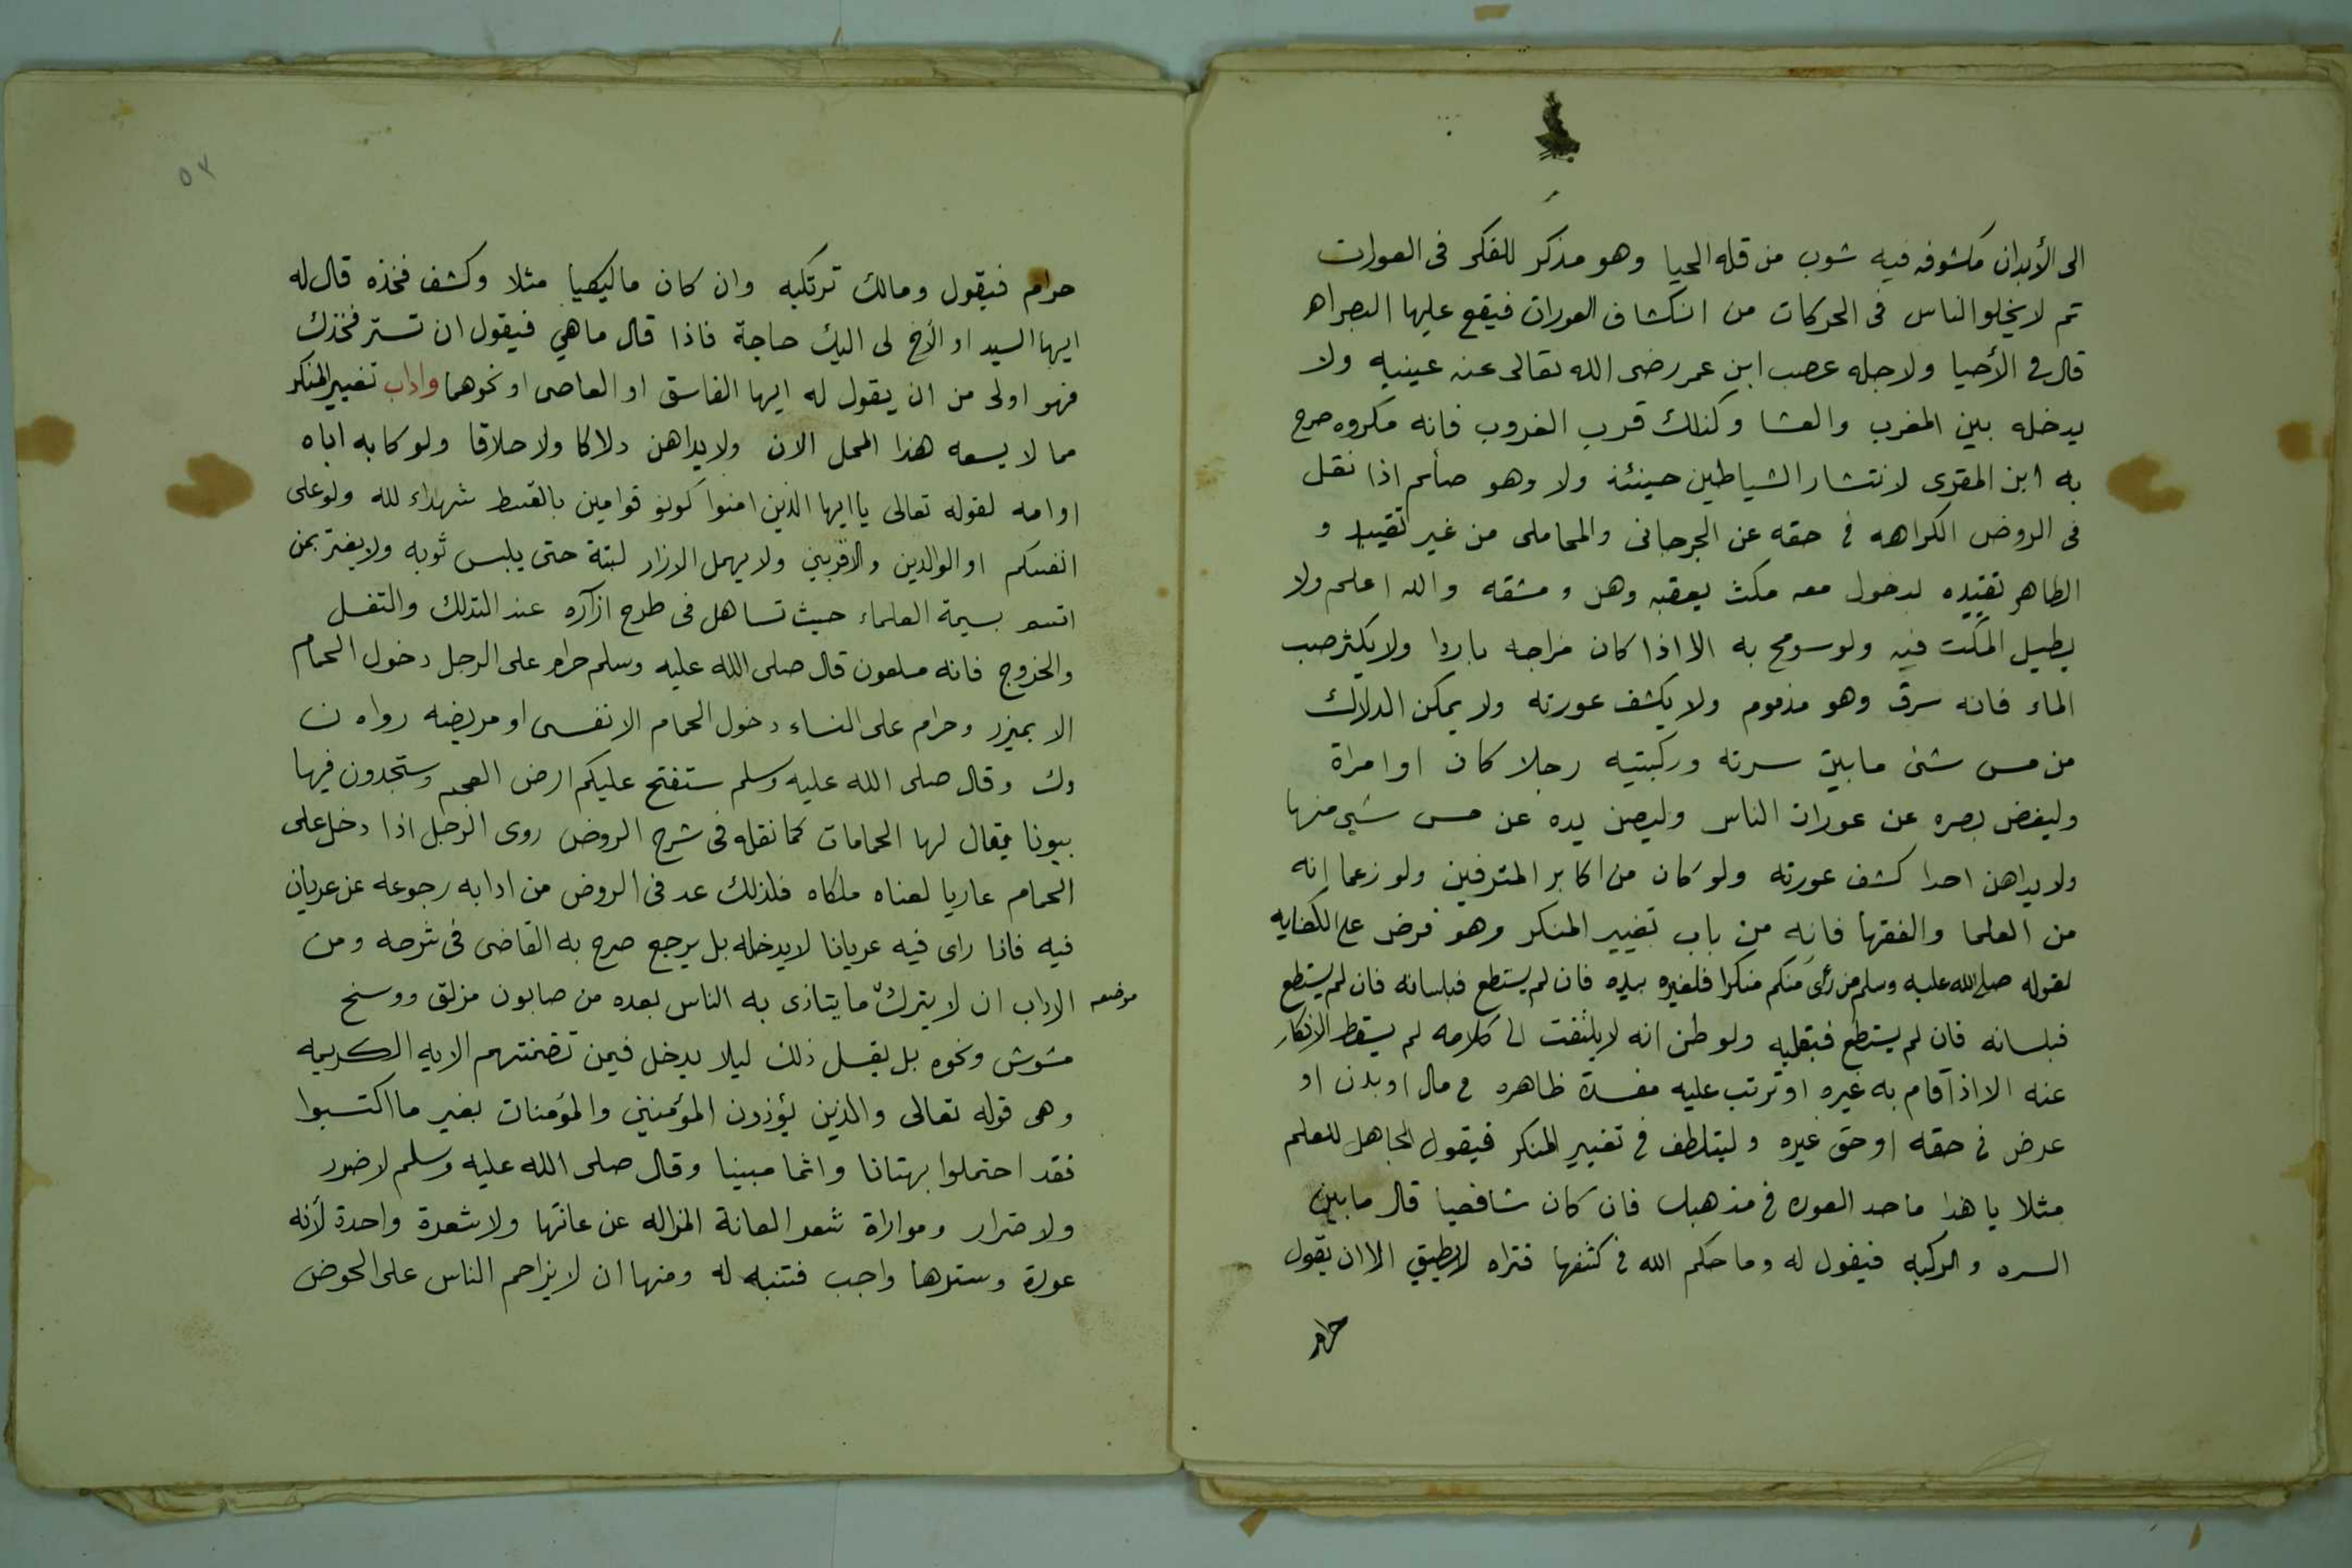 الى الأبدان مكشوفه فيه شوب من قله الحيا وهو مذكر للفكر فى العورات
ثم لا يخلو الناس فى الحركات من انكشاف العورات فيقع عليها البصر اهـ
قال فى الأحيا ولاجله عصب ابن عمر رضى الله تعالى عنه عينيه ولا
يدخله بين المغرب والعشا وكذلك قرب الغروب فانه مكروه صرح
به ابن المقرى لانتشار الشياطين حينئذ ولا وهو صائم اذا نقل
فى الروض الكراهه فى حقه عن الجرجانى والمحاملى من غير تقييد و
الظاهر تقييده لدخول معه مكث يعقبه وهن ومشقه والله اعلم ولا
يطيل المكت فيه ولو سومح به الا اذا كان مزاجه باردا ولا يكثر صب
الماء فانه سرف وهو مذموم ولا يكشف عورته ولا يمكن الدلاك
من مس شئ مابين سرته وركبتيه رجلا كان اوامراة
وليغض بصره عن عورات الناس وليصن يده عن مس شيى منها
ولا يداهن احدا كشف عورته ولو كان من اكابر المترفين ولو زعما انه
من العلما والفقها فانه من باب تغيير المنكر وهو فرض على الكفايه
لقوله صلى الله عليه وسلم من رأى منكم منكرا فلغيره بيده فان لم يستطع فبلسانه فان لم يستطع
فبلسانه فان لم يستطع فبقلبه ولو ظن انه لا يلتفت الى كلامه لم يسقط الانكار
عنه الا اذا قام به غيره او ترتب عليه مفسدة ظاهره فى مال او بدن او
عرض فى حقه او حق غيره وليتلطف فى تغيير المنكر فيقول الجاهل للعلم
مثلا يا هذا ماحد العوره فى مذهبك فان كان شافعيا قال مابين
السره والركبه فيقول له وما حكم الله فى كشفها فتراه لا يطيق الا ان يقول
حرام
٥٢
حرام فيقول ومالك ترتكبه وان كان مالكيا مثلا وكشف فخذه قال له
ايها السيد او الأخ لى اليك حاجة فاذا قال ماهي فيقول ان تستر فخذك
فهو اولى من ان يقول له ايها الفاسق او العاصى او نحوهما واداب تغيير المنكر
مما لا يسعه هذا المحل الان ولا يداهن دلاكا ولا حلاقا ولو كا به اباه
اوامه لقوله تعالى ياايها الذين امنوا كونو قوامين بالقسط شهداء لله ولو على
انفسكم او الوالدين والاقربين ولا يهمل الازار لبتة حتى يلبس ثوبه ولا يغتر بمن
اتسم بسيمة العلماء حيث تساهل فى طرح ازاره عند التدلك والتغسل
والخروج فانه ملعون قال صلى الله عليه وسلم حرام على الرجل دخول الحمام
الا بميزر وحرام على النساء دخول الحمام الا نفسى او مريضه رواه ن
وك وقال صلى الله عليه وسلم ستفتح عليكم ارض العجم وستجدون فيها
بيوتا يقال لها الحمامات كما نقله فى شرح الروض روى الرجل اذا دخل على
الحمام عاريا لعناه ملكاه فلذلك عد فى الروض من ادابه رجوعه عن عريان
فيه فاذا راى فيه عريانا لا يدخله بل يرجع صرح به القاضى فى شرحه ومن
الاداب ان لا يترك ما يتاذى به الناس بعده من صابون مزلق ووسخ
موضعه
مشوش ونحوه بل يغسل ذلك ليلا يدخل فيمن تضمنتهم الايه الكريمه
وهى قوله تعالى والذين يؤذون المؤمنين والمؤمنات بغير ما اكتسبوا
فقد احتملوا بهتانا واثما مبينا وقال صلى الله عليه وسلم لا ضرر
ولا ضرار وموراة شعر العانة المزاله عن عانتها ولا شعرة واحدة لأنه
عورة وسترها واجب فتنبه له ومنها ان لا يزاحم الناس على الحوض